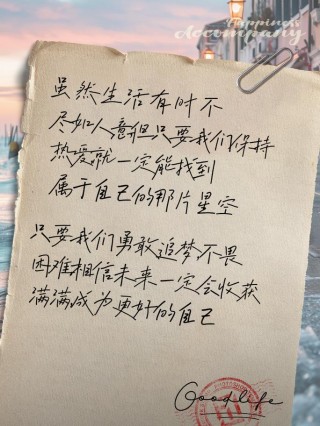 Happiness
Accompany
虽然生活有时不
尽如人意但只要我们保持
热爱就一定能找到
属于自己的那片星空
只要我们勇敢追梦不畏
困难相信未来一定会收获
满满成为更好的自己
Good life